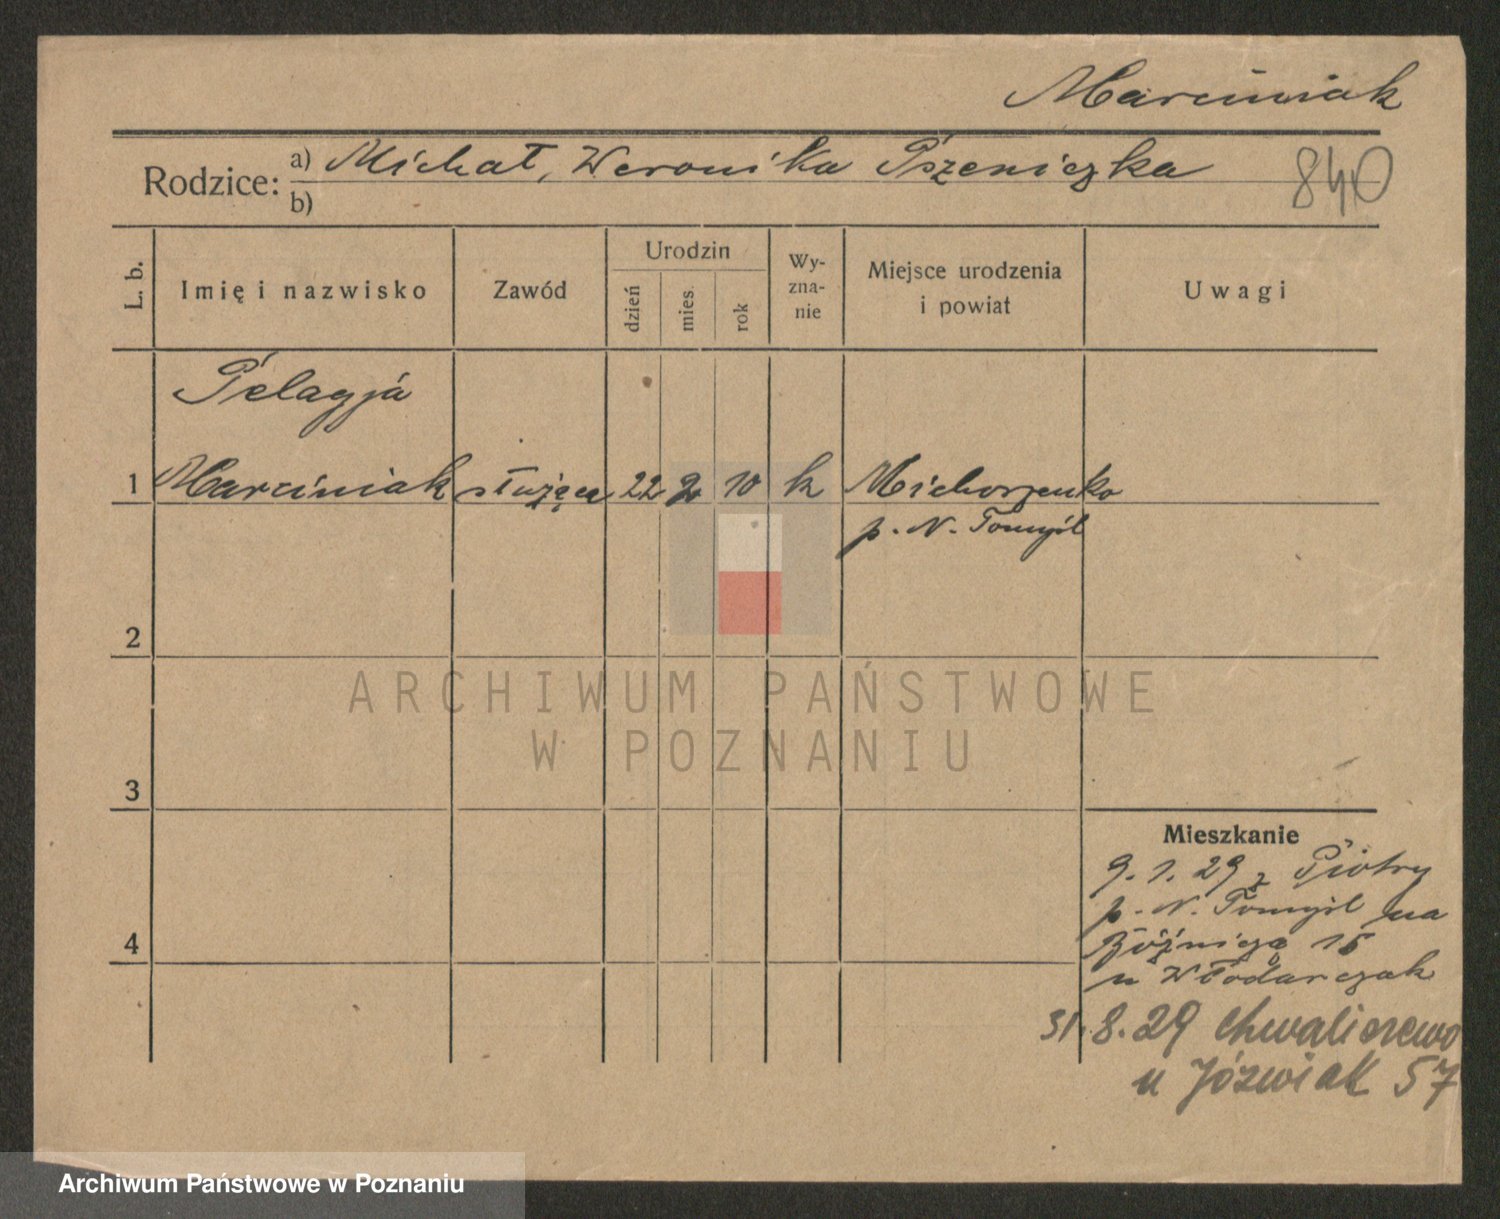 Marciniak
Rodzice: a) Michał, Weronika Pszeniczka
840
b)
L. b.
Imię i nazwisko
Zawód
Urodzin
dzień
mies.
rok
Wy-
zna-
nie
Miejsce urodzenia
i powiat
Uwagi
Pelagja
1 Marciniak służąca 22 2 10 k Michorzewko
p. N. Tomyśl
2
ARCHIWUM PAŃSTWOWE
W POZNANIU
3
Mieszkanie
9.1.29 z Piotry
p. N. Tomyśl na
4
15
u Włodarczak
31.8.29 Chwaliszewo
u Jóźwiak 57
Archiwum Państwowe w Poznaniu